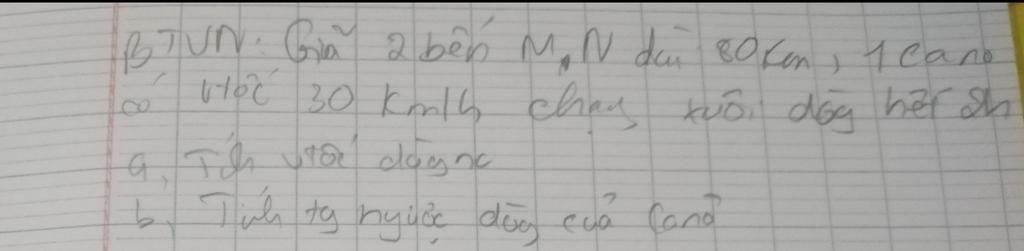 BTVN: Giữa 2 bến M, N dài 80km, 1 cano
có vtốc 30 km/h chạy xuôi dòg hết 2h
a, Tíh vtốc dòg nc
b, Tính tg ngược dòg của Canô